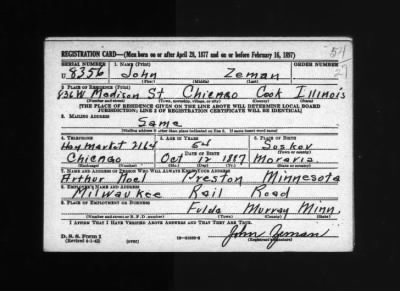 54
REGISTRATION CARD—(Men born on or after April 28, 1877 and on or before February 16, 1897)
SERIAL NUMBER 1. NAME (Print) ORDER NUMBER
U 8356 John Zeman 27
(First) (Middle) (Last)
2. PLACE OF RESIDENCE (Print)
836 W Madison St Chicago Cook Illinois
(Number and street) (Town, township, village, or city) (County) (State)
[THE PLACE OF RESIDENCE GIVEN ON THE LINE ABOVE WILL DETERMINE LOCAL BOARD
JURISDICTION; LINE 2 OF REGISTRATION CERTIFICATE WILL BE IDENTICAL]
3. MAILING ADDRESS
Same
[Mailing address if other than place indicated on line 2. If same insert word same]
4. TELEPHONE 5. AGE IN YEARS 6. PLACE OF BIRTH
Haymarket 2164 54 Soskov
DATE OF BIRTH (Town or county)
Chicago Oct 12 1887 Moravia
(Exchange) (Number) (Mo.) (Day) (Yr.) (State or country)
7. NAME AND ADDRESS OF PERSON WHO WILL ALWAYS KNOW YOUR ADDRESS
Arthur Noel Preston Minnesota
8. EMPLOYER'S NAME AND ADDRESS
Milwaukee Rail Road
9. PLACE OF EMPLOYMENT OR BUSINESS
Fulda Murray Minn.
(Number and street or R. F. D. number) (Town) (County) (State)
I AFFIRM THAT I HAVE VERIFIED ABOVE ANSWERS AND THAT THEY ARE TRUE.
John Zeman
D. S. S. Form 1
(Revised 4-1-42) (over) (Registrant's signature)